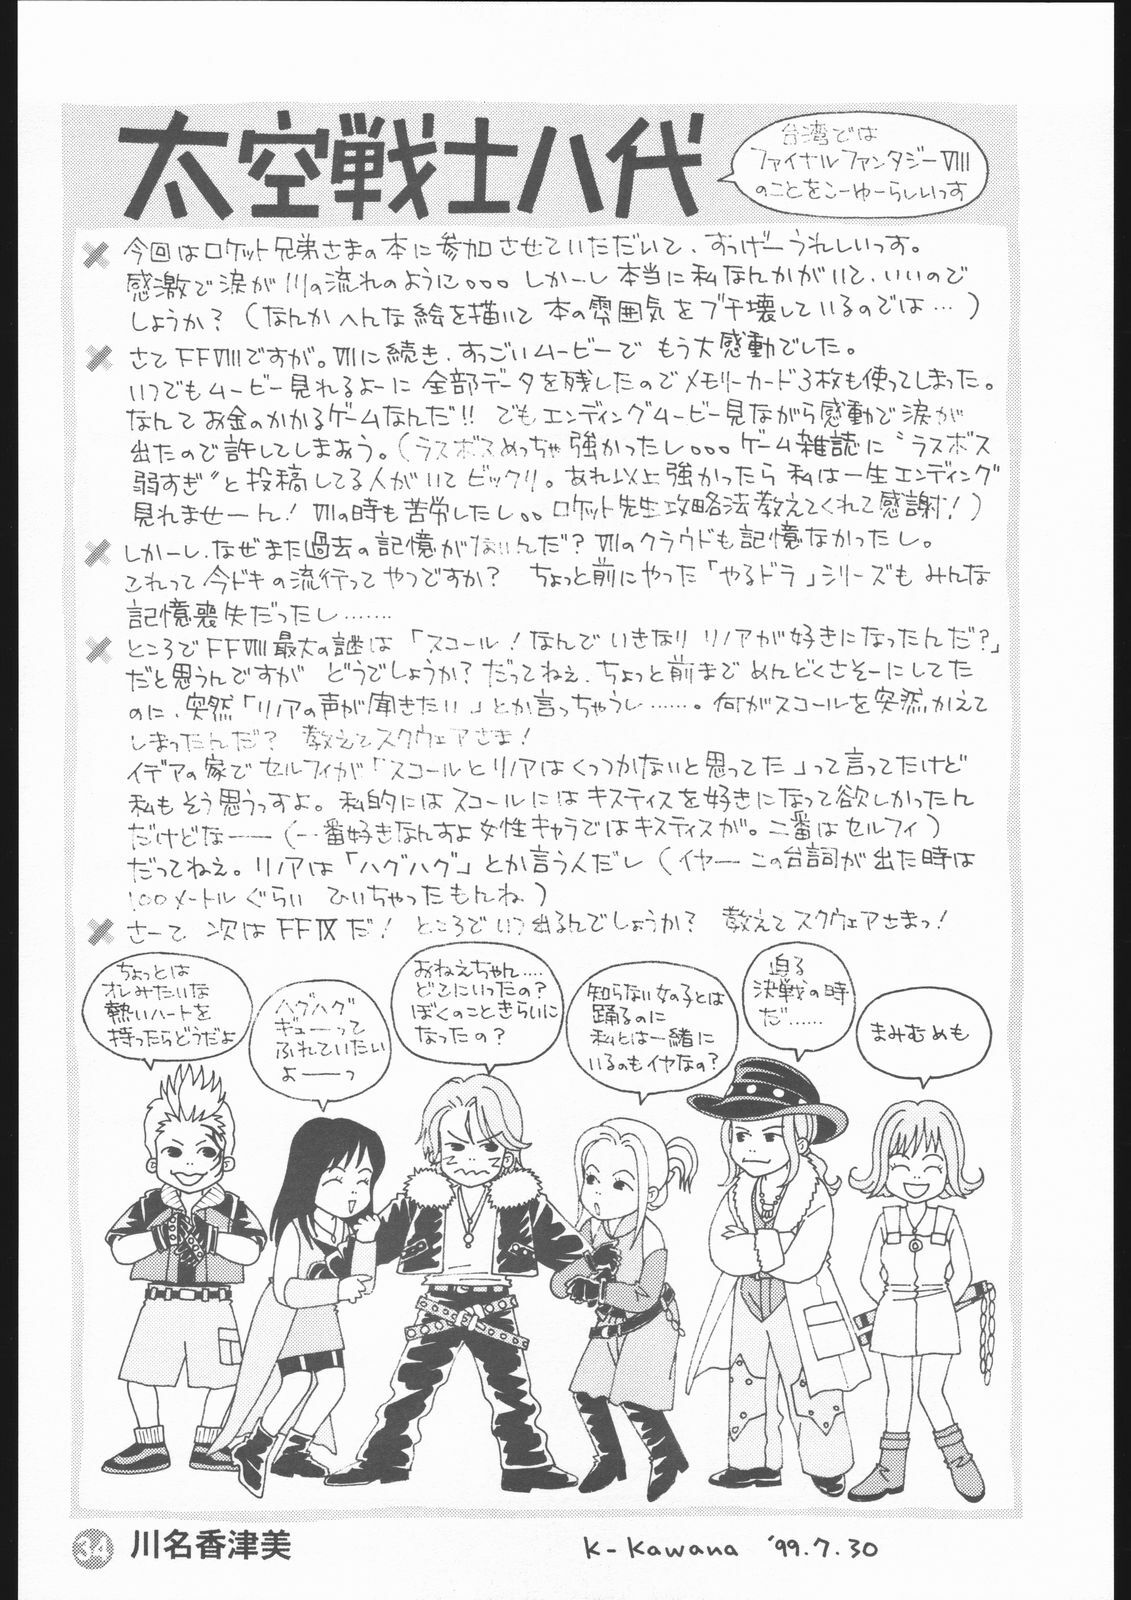 太空戦士八代
台湾では
ファイナルファンタジーVIII
のことをこーゆーらしいっす
今回はロケット兄弟さまの本に参加させていただいて、すっげーうれしいっす。
感激で涙が川の流れのように。。。しかーし本当に私なんかがいて、いいので
しょうか？（なんかへんな絵を描いて本の雰囲気をブチ壊しているのでは…）
さてFFVIIIですが。VIIに続き、すっごいムービーでもう大感動でした。
いつでもムービー見れるよーに全部データを残したのでメモリーカード3枚も使ってしまった。
なんてお金のかかるゲームなんだ!! でもエンディングムービー見ながら感動で涙が
出たので許してしまおう。（ラスボスめっちゃ強かったし。。。ゲーム雑誌に"ラスボス
弱すぎ"と投稿してる人がいてビックリ。あれ以上強かったら私は一生エンディング
見れませーん！VIIの時も苦労したし。。ロケット先生攻略法教えてくれて感謝！）
しかーし、なぜまた過去の記憶がないんだ？VIIのクラウドも記憶なかったし。
これって今ドキの流行ってやつですか？ ちょっと前にやった「やるドラ」シリーズもみんな
記憶喪失だったし……
ところでFFVIII最大の謎は「スコール！なんでいきなりリノアが好きになったんだ？」
だと思うんですがどうでしょうか？だってねぇ、ちょっと前までめんどくさそーにしてた
のに、突然「リノアの声が聞きたい」とか言っちゃうし……。何がスコールを突然かえて
しまったんだ？ 教えてスクウェアさま！
イデアの家でセルフィが「スコールとリノアはくっつかないと思ってた」って言ってたけど
私もそう思うっすよ。私的にはスコールにはキスティスを好きになって欲しかったん
だけどなーー（一番好きなんすよ女性キャラではキスティスが。二番はセルフィ）
だってねぇ。リノアは「ハグハグ」とか言う人だし（イヤーこの台詞が出た時は
100メートルぐらいひいちゃったもんね）
さーて 次はFFIXだ！ ところでいつ出るんでしょうか？ 教えてスクウェアさまっ！
ちょっとは
オレみたいな
熱いハートを
持ったらどうだよ
ハグハグ
ギューって
ふれていたい
よーーっ
おねえちゃん……
どこにいったの？
ぼくのこときらいに
なったの？
知らない女の子とは
踊るのに
私とは一緒に
いるのもイヤなの？
迫る
決戦の時
だ……
まみむめも
34
川名香津美
K-Kawana '99.7.30